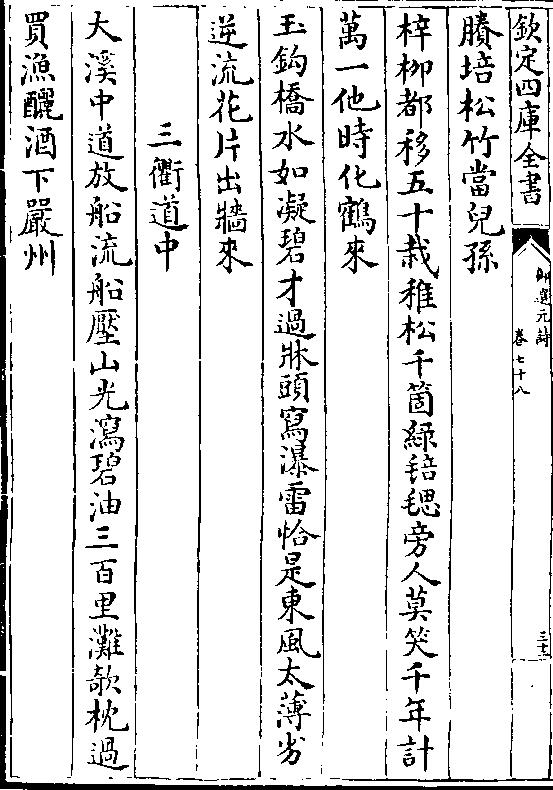 欽定四庫全書
御選元詩
卷七十八
三十二
賸培松竹當兒孫
梓柳都移五十栽稚松千箇緑毰毸旁人莫笑千年計
萬一他時化鶴來
玉鈎橋水如凝碧才過牀頭寫瀑雷恰是東風太薄劣
逆流花片出牆來
三衢道中
大溪中道放船流船壓山光瀉碧油三百里灘欹枕過
買漁釃酒下嚴州